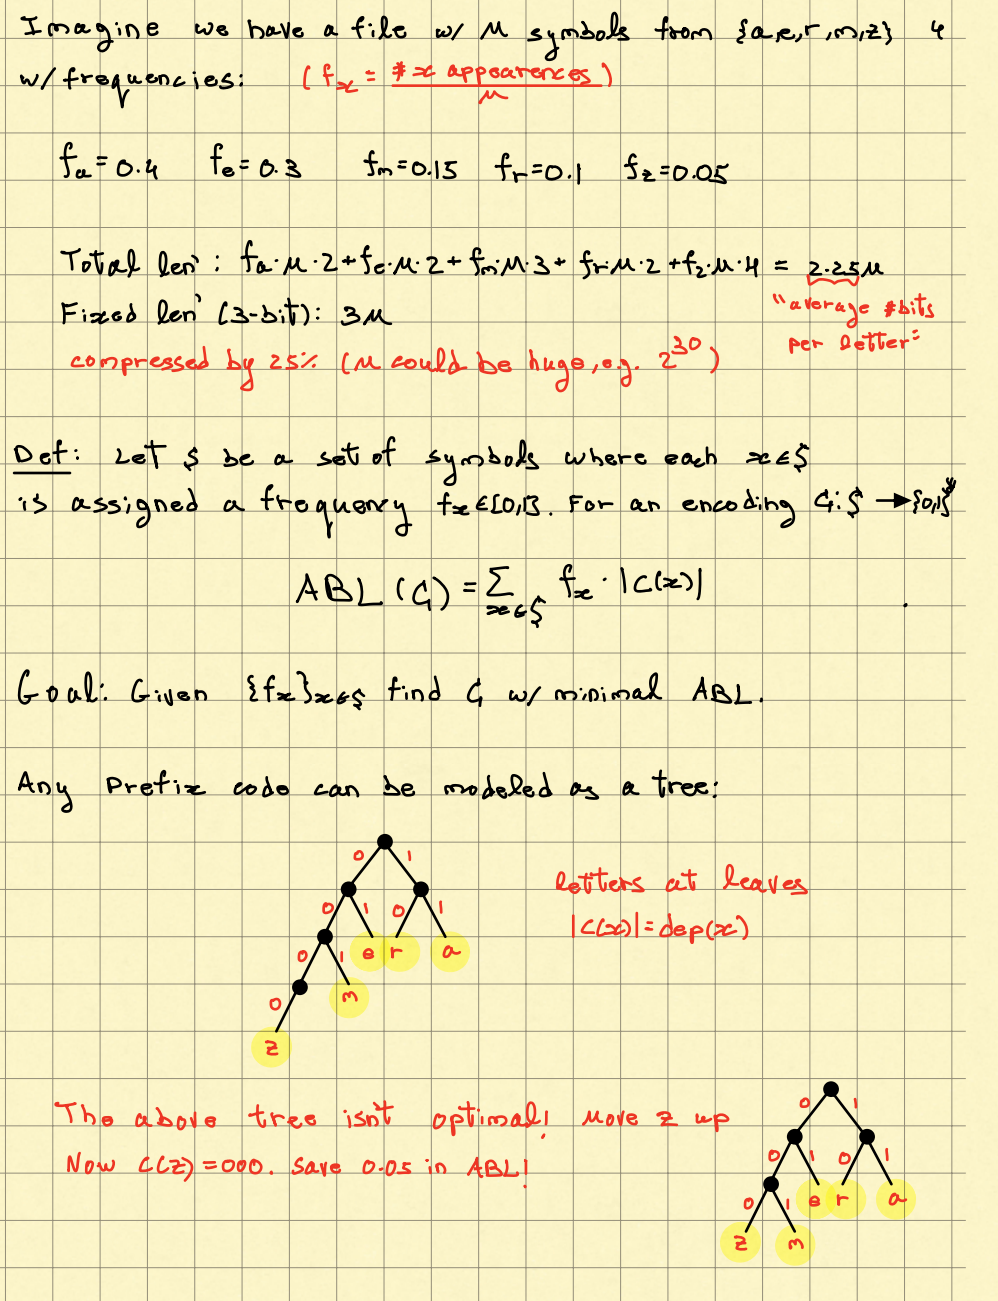 Imagine we have a file w/ M symbols from {a,e,r,m,z} &
w/ frequencies: (f_x = # x appearences / M)
f_a = 0.4 f_e = 0.3 f_m = 0.15 f_r = 0.1 f_z = 0.05
Total len': f_a·M·2 + f_e·M·2 + f_m·M·3 + f_r·M·2 + f_z·M·4 = 2.25M
"average #bits
per letter"
Fixed len' (3-bit): 3M
compressed by 25% (M could be huge, e.g. 2^30)
Def: Let S be a set of symbols where each x∈S
is assigned a frequency f_x∈[0,1]. For an encoding C: S → {0,1}*
ABL(C) = Σ_{x∈S} f_x · |C(x)|
Goal: Given {f_x}_{x∈S} find C w/ minimal ABL.
Any Prefix code can be modeled as a tree:
0 1
0 1 0 1
0 1 e r a
0 m
z
letters at leaves
|C(x)| = dep(x)
The above tree isn't optimal! Move z up
Now C(z) = 000. Save 0.05 in ABL!
0 1
0 1 0 1
0 1 e r a
z m